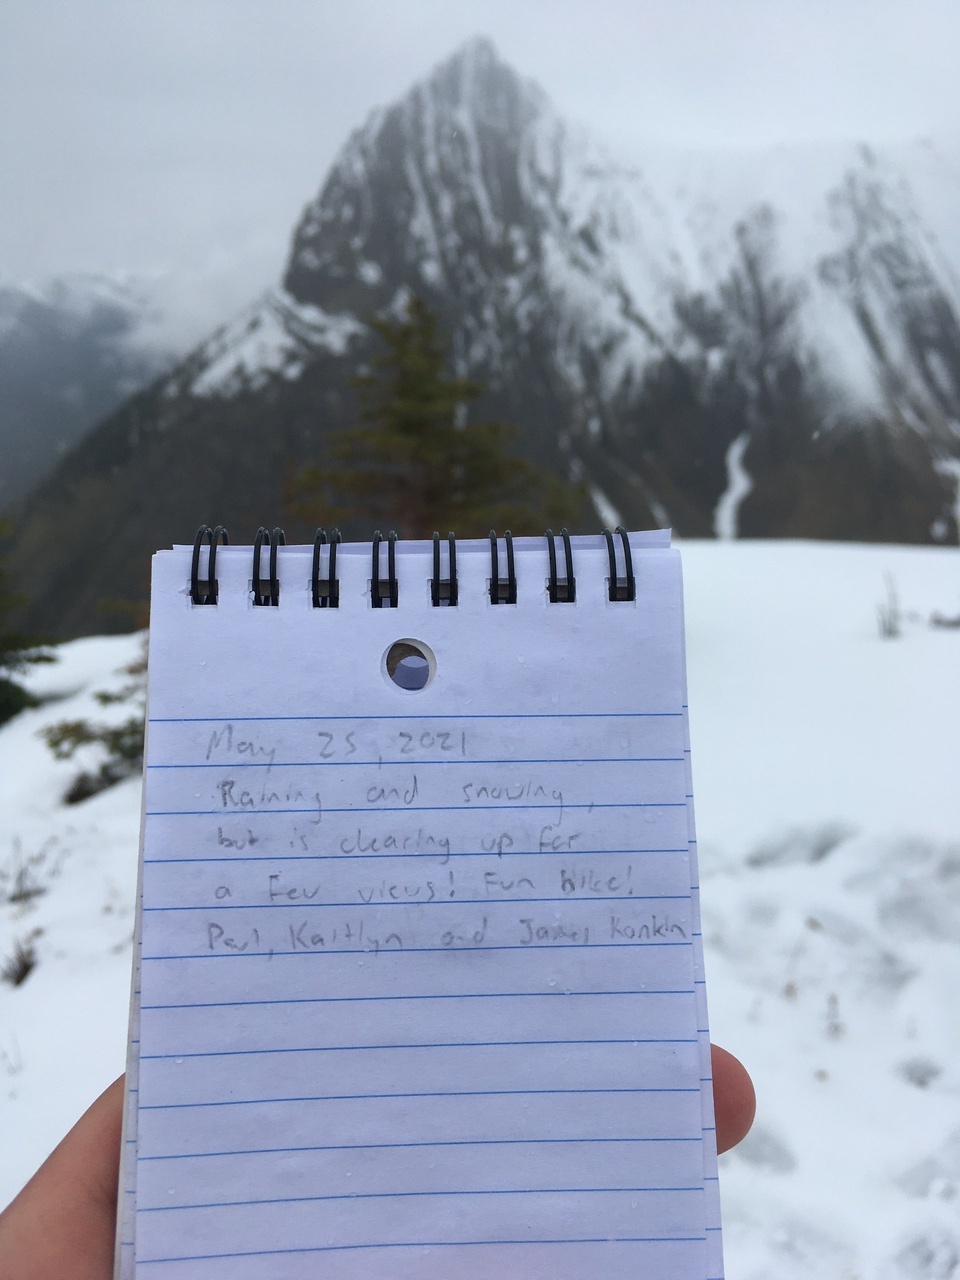 May 25, 2021
Raining and snowing,
but is clearing up for
a few views! Fun hike!
Paul, Kaitlyn and James Konkin